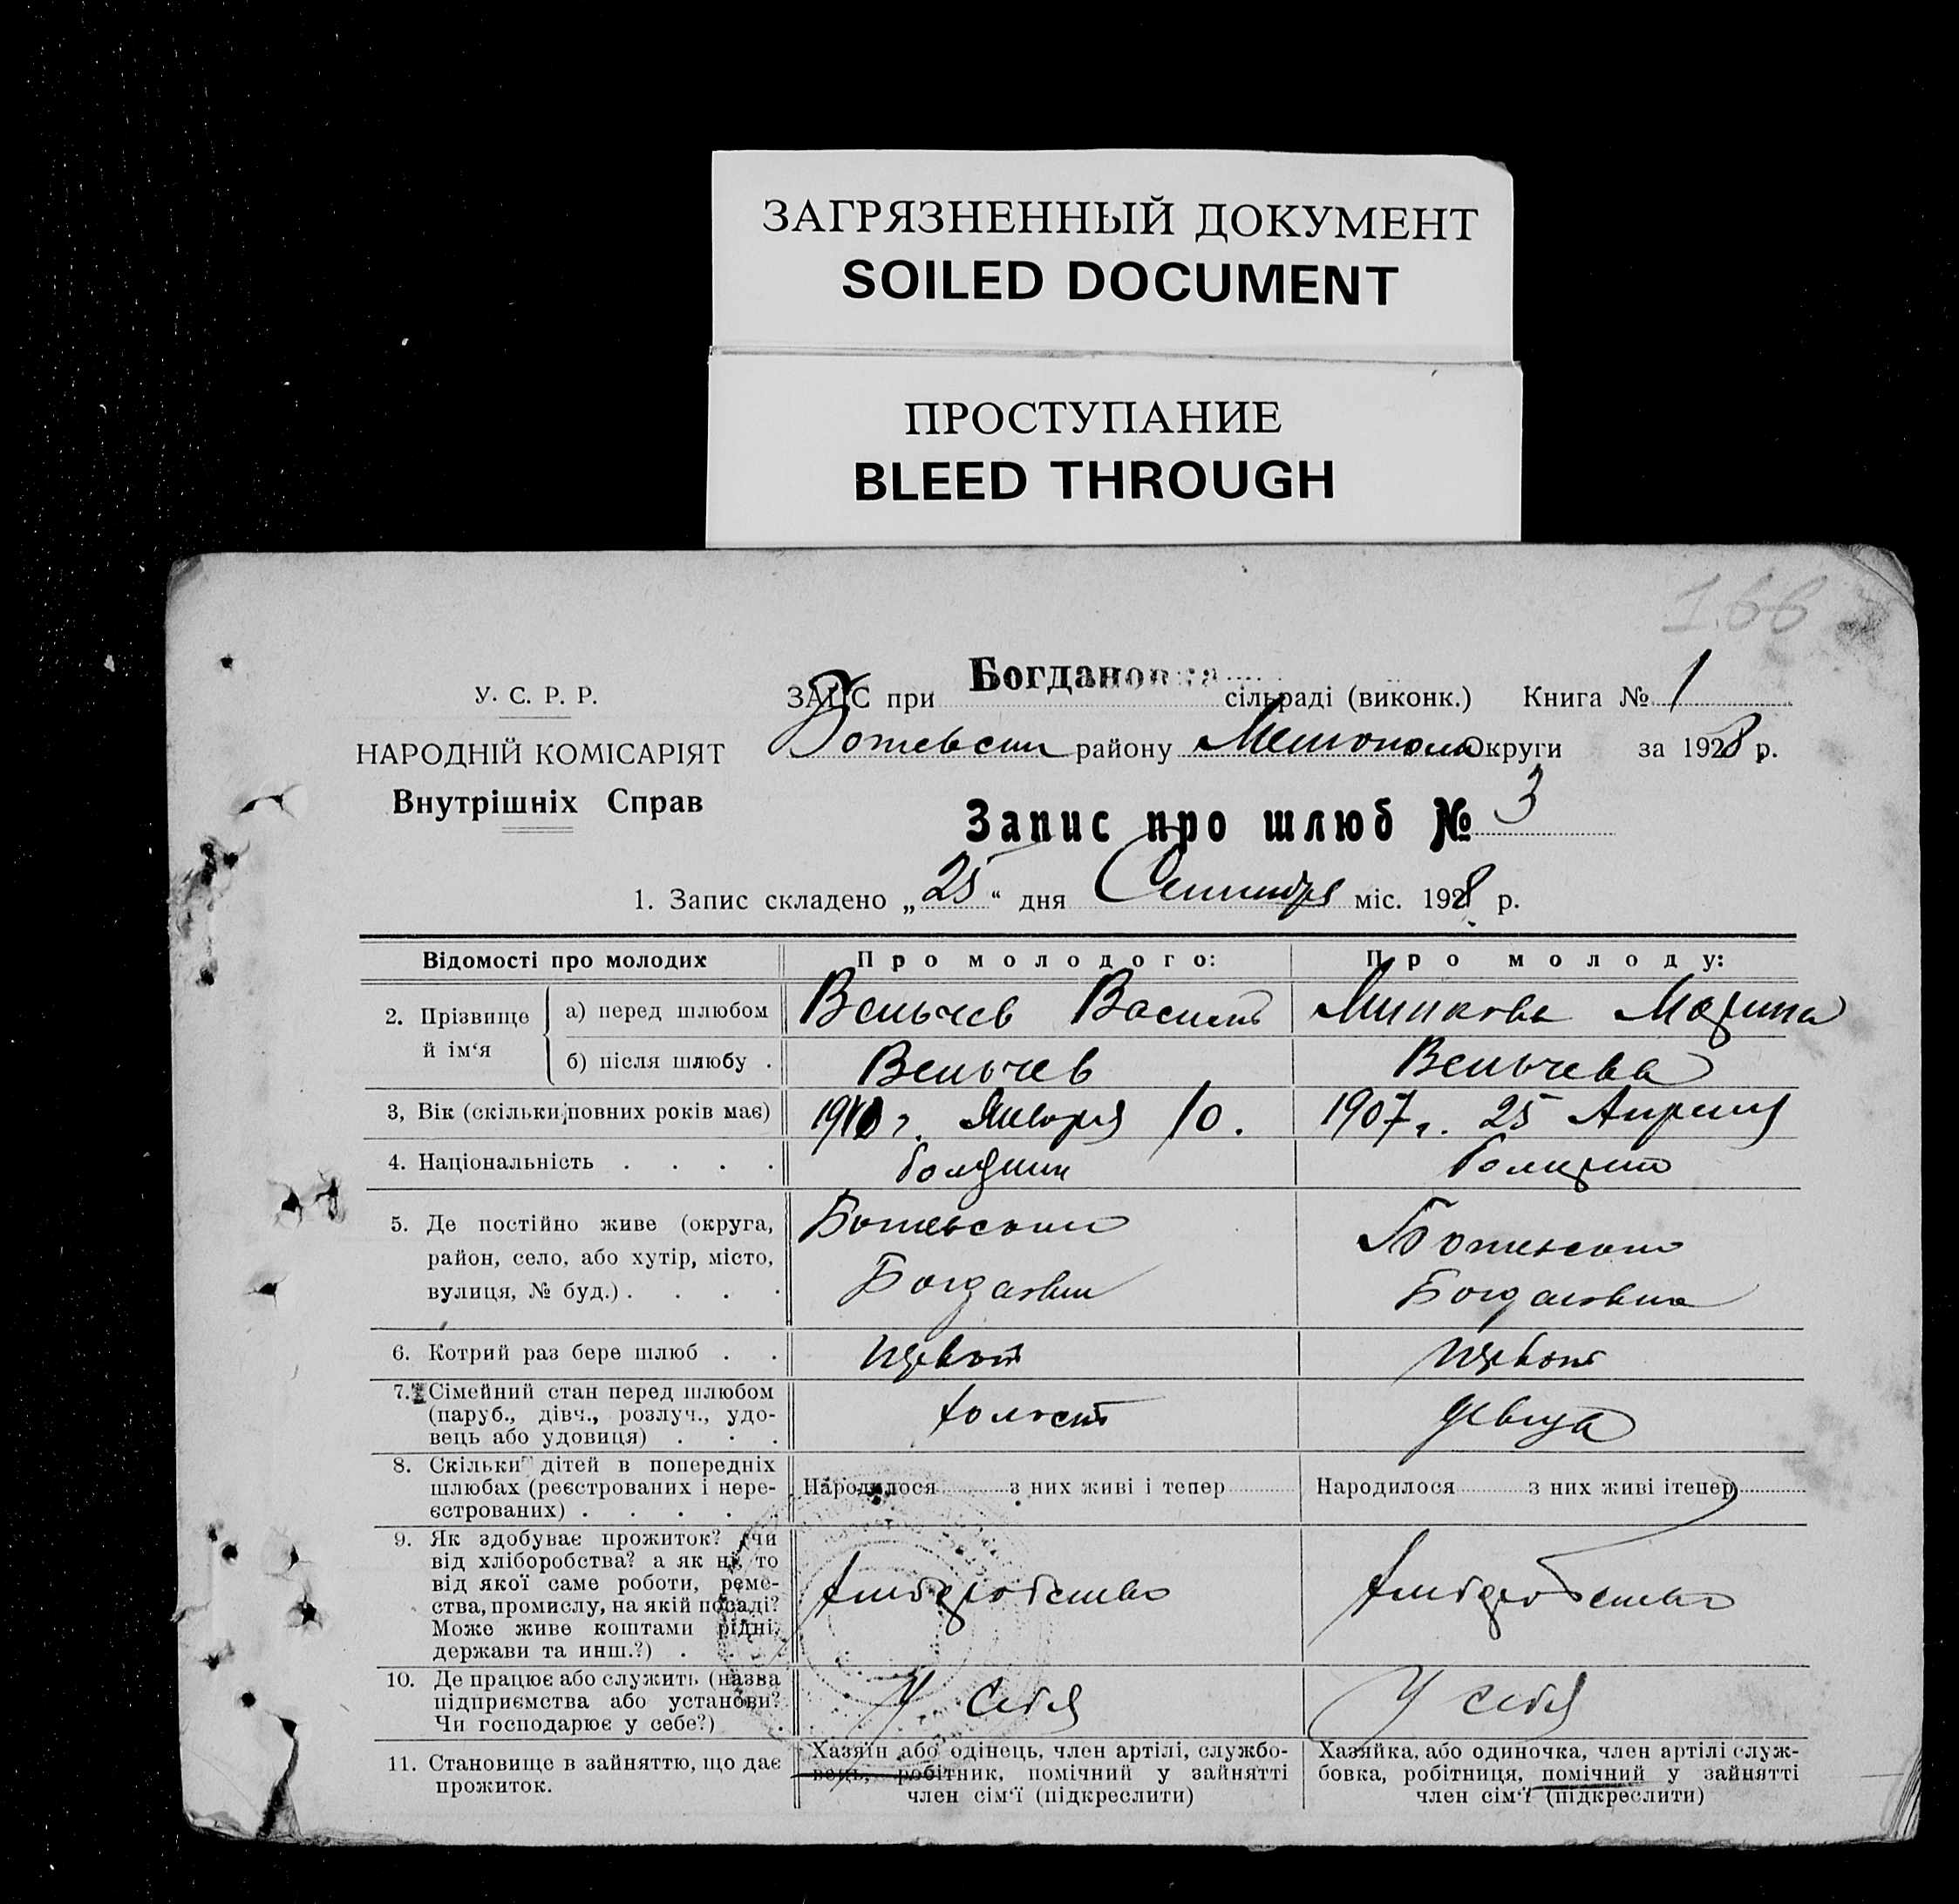 ЗАГРЯЗНЕННЫЙ ДОКУМЕНТ
SOILED DOCUMENT
ПРОСТУПАНИЕ
BLEED THROUGH
166
У. С. Р. Р.
НАРОДНІЙ КОМІСАРІЯТ
Внутрішніх Справ
ЗАПИС при Богдановка сільраді (виконк.) Книга № 1
району Округи за 1928 р.
Запис про шлюб № 3
1. Запис складено „25“ дня Сентября міс. 1928 р.
Відомості про молодих Про молодого: Про молоду:
2. Прізвище й ім‘я
а) перед шлюбом Вельчев Василь Минкова Марина
б) після шлюбу . Вельчев Вельчева
3, Вік (скільки повних років має) 1910 г. Января 10. 1907 г. 25 Апреля
4. Національність . . . . болгрин болгрин
5. Де постійно живе (округа,
район, село, або хутір, місто,
вулиця, № буд.) . . . .
Ботевского
Богдановки
Ботевского
Богдановка
6. Котрий раз бере шлюб . . первой первой
7. Сімейний стан перед шлюбом
(паруб., дівч., розлуч., удо-
вець або удовиця) . . .
холост девица
8. Скільки дітей в попередніх
шлюбах (реєстрованих і нере-
єстрованих) . . . . .
Народилося з них живі і тепер Народилося з них живі ітепер
9. Як здобуває прожиток? (чи
від хліборобства? а як ні, то
від якої саме роботи, реме-
ства, промислу, на якій посаді?
Може живе коштами рідні,
держави та инш.?) .
хлібдробство хлібдробство
10. Де працює або служить (назва
підприємства або установи?
Чи господарює у себе?) .
У себя У себя
11. Становище в зайняттю, що дає
прожиток.
Хазяїн або одінець, член артілі, службо-
вець, робітник, помічний у зайнятті
член сім‘ї (підкреслити)
Хазяйка, або одиночка, член артілі служ-
бовка, робітниця, помічний у зайнятті
член сім‘ї (підкреслити)